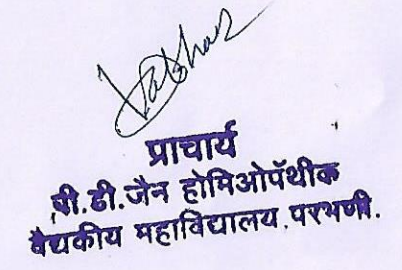 प्राचार्य
बी.डी.जैन होमिओपॅथीक
वैद्यकीय महाविद्यालय,परभणी.